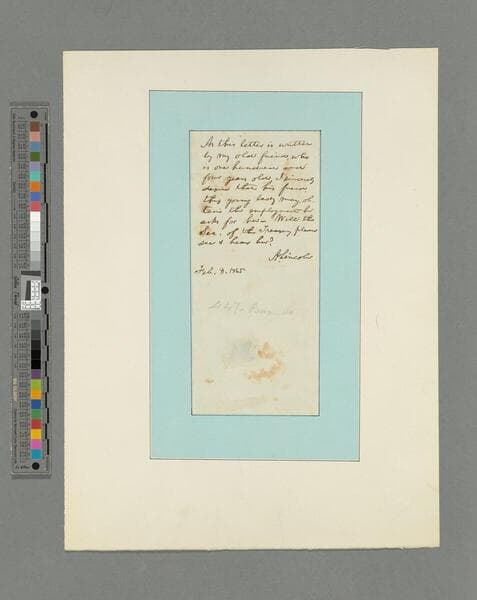 As this letter is written
by my old friend, who
is one hundred and
four years old, I sincerely
desire that his friend
this young lady may ob-
tain the employment he
asks for her— Will the
Sec. of the Treasury please
see & hear her?
A. Lincoln
Feb. 3. 1865